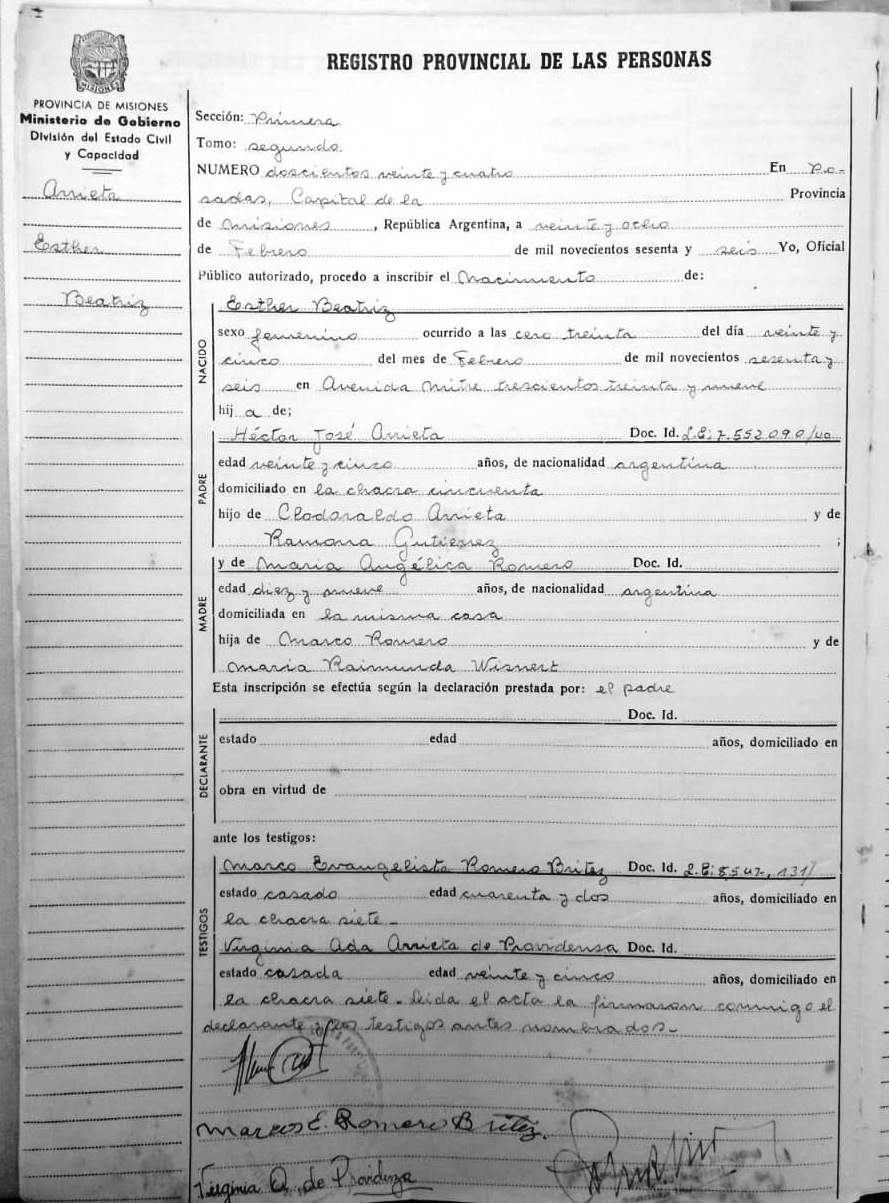 REGISTRO PROVINCIAL DE LAS PERSONAS
MISIONES
PROVINCIA DE MISIONES
Ministerio de Gobierno
División del Estado Civil
y Capacidad
Arrieta
Esther
Beatriz
Sección: Primera
Tomo: segundo.
NUMERO doscientos veinte y cuatro En Po-
sadas, Capital de la Provincia
de Misiones, República Argentina, a veinte y ocho
de Febrero de mil novecientos sesenta y seis Yo, Oficial
Público autorizado, procedo a inscribir el Nacimiento de:
NACIDO
Esther Beatriz
sexo femenino ocurrido a las cero treinta del día veinte y
cinco del mes de Febrero de mil novecientos sesenta y
seis en Avenida Mitre trescientos treinta y nueve
hij a de;
PADRE
Héctor José Arrieta Doc. Id. L.E: 7.552.090/
edad veinte y cinco años, de nacionalidad argentina
domiciliado en la chacra cincuenta
hijo de Clodoraldo Arrieta y de
Ramona Gutierrez ;
MADRE
y de Maria Angélica Romero Doc. Id.
edad diez y nueve años, de nacionalidad argentina
domiciliada en la misma casa
hija de Marco Romero y de
Maria Raimunda Wisnert
Esta inscripción se efectúa según la declaración prestada por: el padre
DECLARANTE
Doc. Id.
estado edad años, domiciliado en
obra en virtud de
ante los testigos:
TESTIGOS
Marco Evangelista Romero Britez Doc. Id. L.E:
estado casado edad cuarenta y dos años, domiciliado en
la chacra siete-
Virginia Ada Arrieta de Providensa Doc. Id.
estado casada edad veinte y cinco años, domiciliado en
la chacra siete- Leida el acta la firmaron conmigo el
declarante y los testigos antes nombrados-
Marcos E. Romero Britez.
Virginia A. de Providenza